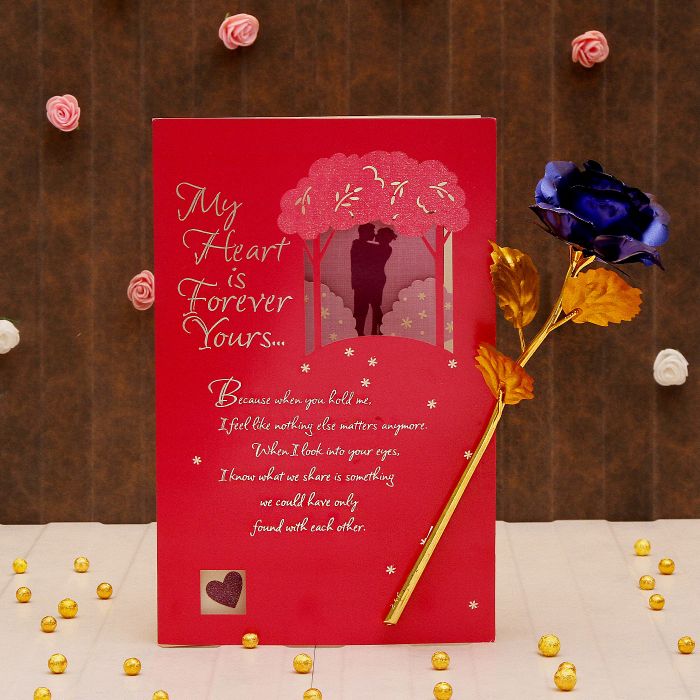 My
Heart
is
Forever
Yours...
Because when you hold me,
I feel like nothing else matters anymore.
When I look into your eyes,
I know what we share is something
we could have only
found with each other.